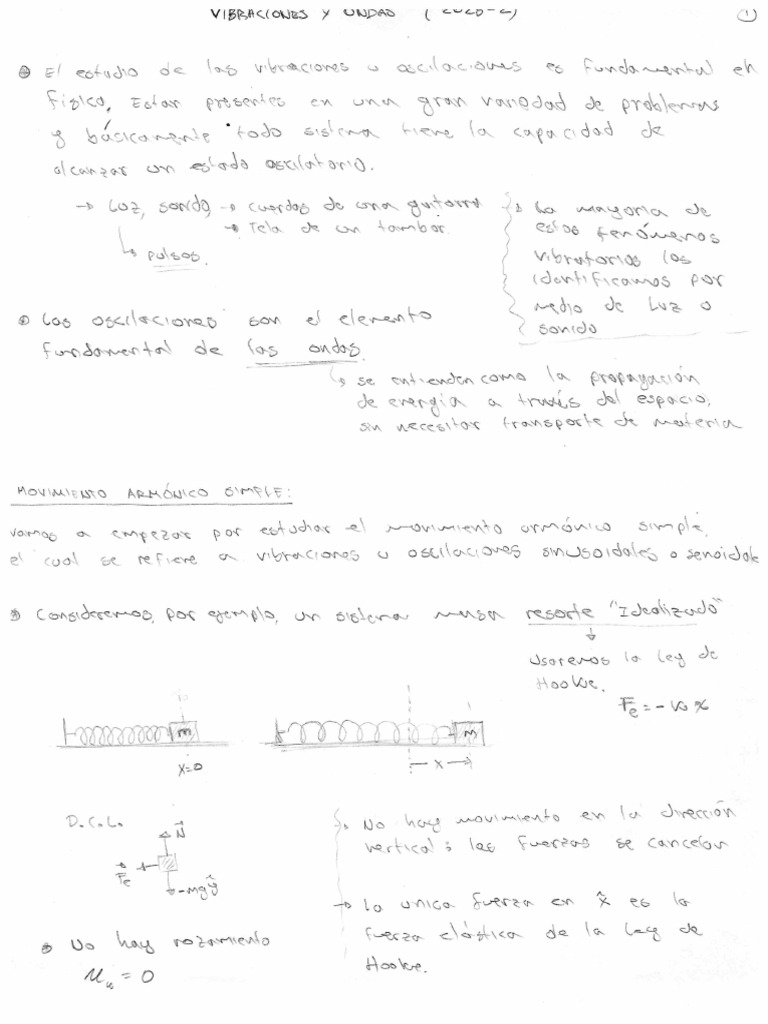 VIBRACIONES Y ONDAS (2020-2)
1
El estudio de las vibraciones u oscilaciones es fundamental en
Física, Estar presentes en una gran variedad de problemas
y básicamente todo sistema tiene la capacidad de
alcanzar un estado oscilatorio.
→ Luz, sonido → cuerdas de una guitarra
→ Tela de un tambor.
↳ pulsos.
→ La mayoría de
estos fenómenos
vibratorios los
identificamos por
medio de Luz o
sonido
Las oscilaciones son el elemento
fundamental de las ondas.
↳ se entienden como la propagación
de energía a través del espacio,
sin necesitar transporte de materia
MOVIMIENTO ARMÓNICO SIMPLE:
Vamos a empezar por estudiar el movimiento armónico simple,
el cual se refiere a vibraciones u oscilaciones sinusoidales o senoidale
Consideremos, por ejemplo, un sistema masa resorte "Idealizado"
Usaremos la Ley de
Hooke.
Fe = - k x
m
x=0
m
x
D.C.L.
N
Fe
-mgŷ
→ No hay movimiento en la dirección
vertical : las fuerzas se cancelan
→ La unica fuerza en x̂ es la
fuerza elástica de la Ley de
Hooke.
No hay rozamiento
μk = 0